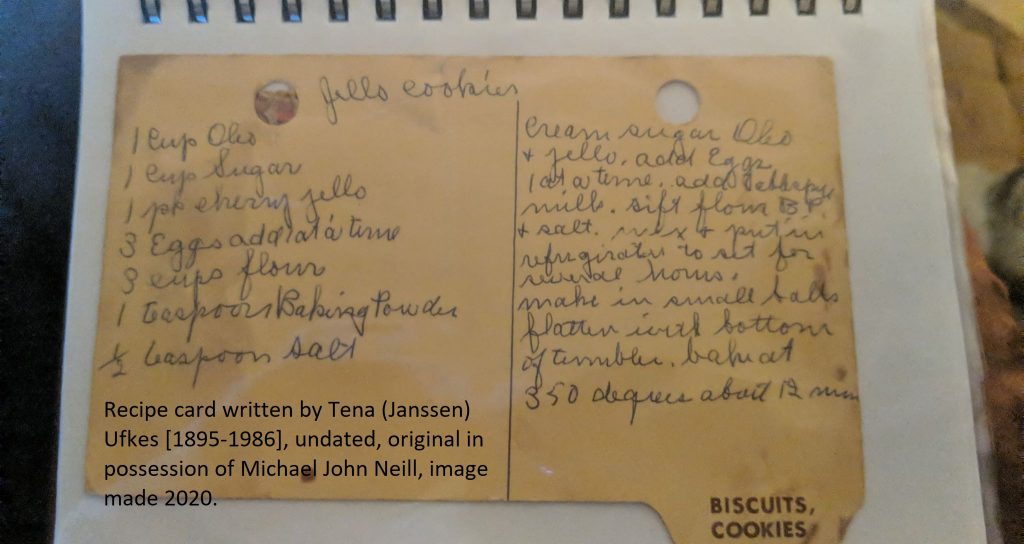 Jello cookies
1 Cup Oleo
1 Cup Sugar
1 pk cherry jello
3 Eggs add 1 at a time
3 cups flour
1 teaspoon Baking Powder
1/2 teaspoon salt
Cream sugar Oleo
+ jello. add Eggs
1 at a time. add
milk. sift flour B.P.
+ salt. mix + put in
refrigirator to set for
several hours.
make in small balls
flatten with bottom
of tumbler. bake at
350 degrees about 12 min
Recipe card written by Tena (Janssen)
Ufkes [1895-1986], undated, original in
possession of Michael John Neill, image
made 2020.
BISCUITS,
COOKIES